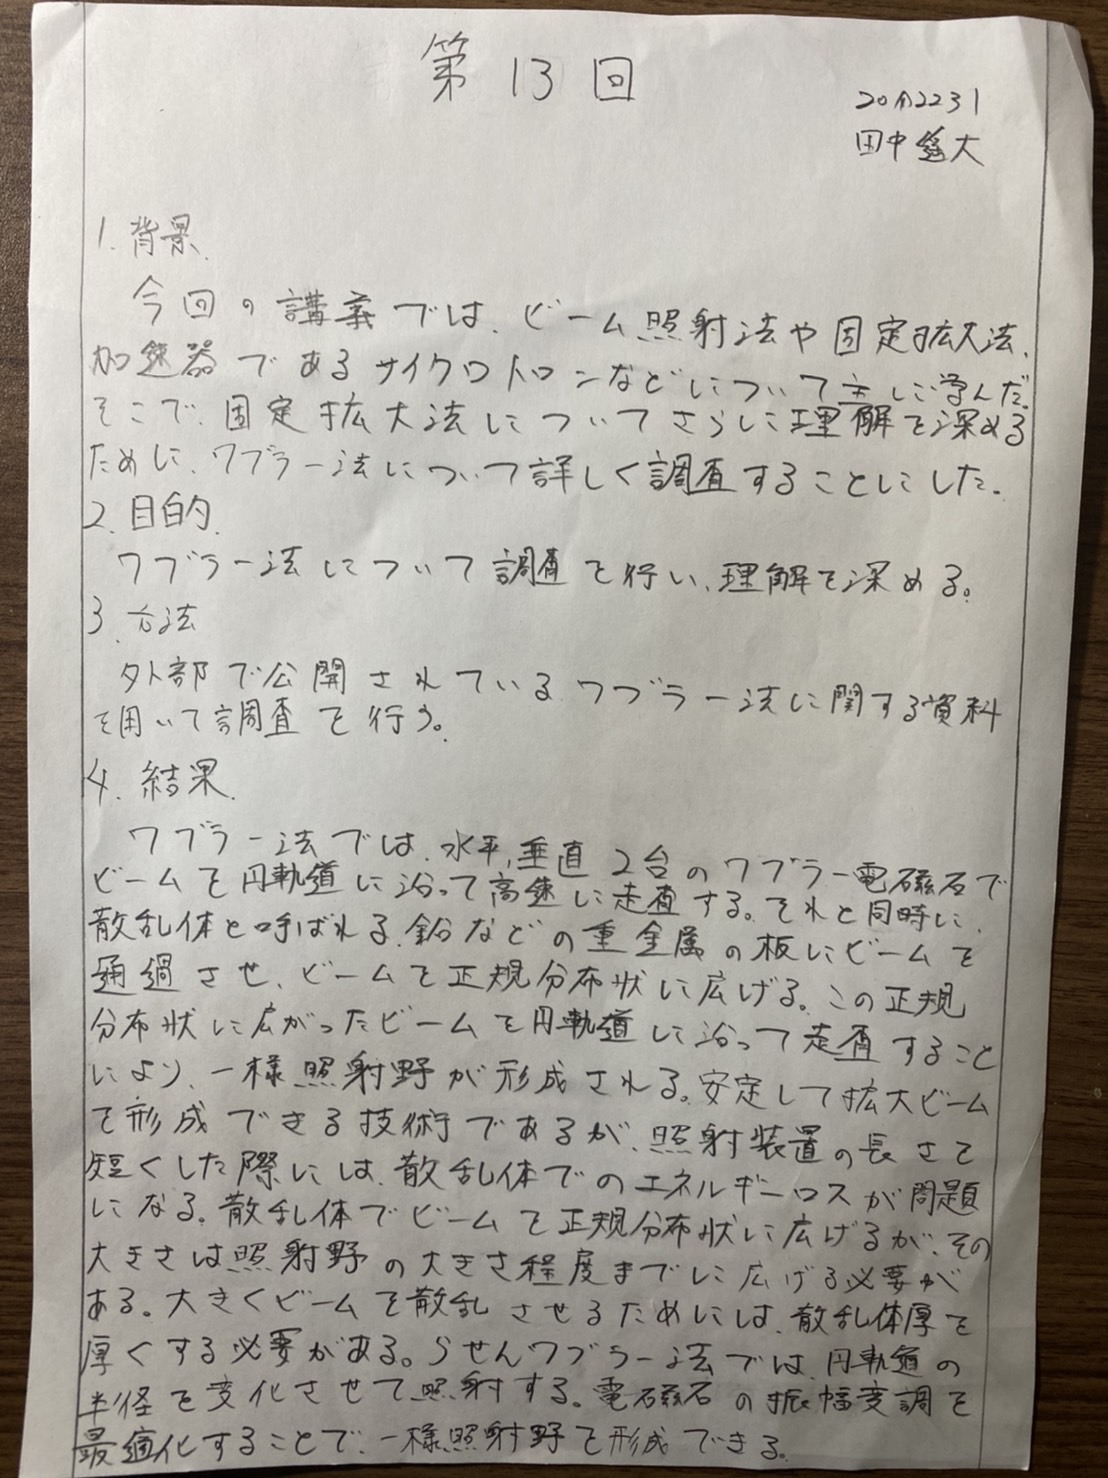 第13回
田中 大
1. 背景.
今回の講義では、ビーム照射法や固定拡大法、
加速器であるサイクロトロンなどについて主に学んだ。
そこで、固定拡大法についてさらに理解を深める
ために、ワブラー法について詳しく調査することにした。
2. 目的.
ワブラー法について調査を行い、理解を深める。
3. 方法
外部で公開されているワブラー法に関する資料
を用いて調査を行う。
4. 結果.
ワブラー法では、水平,垂直2台のワブラー電磁石で
ビームを円軌道に沿って高速に走査する。それと同時に、
散乱体と呼ばれる、鉛などの重金属の板にビームを
通過させ、ビームを正規分布状に広げる。この正規
分布状に広がったビームを円軌道に沿って走査すること
により、一様照射野が形成される。安定して拡大ビーム
を形成できる技術であるが、照射装置の長さを
短くした際には、散乱体でのエネルギーロスが問題
になる。散乱体でビームを正規分布状に広げるが、その
大きさは照射野の大きさ程度までに広げる必要が
ある。大きくビームを散乱させるためには、散乱体厚を
厚くする必要がある。らせんワブラー法では、円軌道の
半径を変化させて照射する。電磁石の振幅変調を
最適化することで、一様照射野を形成できる。